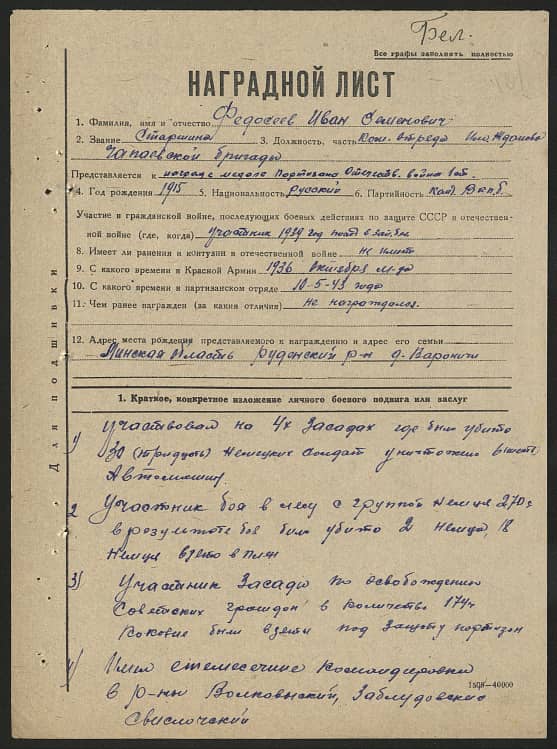 Бел.
Все графы заполнять полностью
НАГРАДНОЙ ЛИСТ
1. Фамилия, имя и отчество Федосеев Иван Семенович
2. Звание Старшина 3. Должность, часть Ком. отряда им. Жданова
Чапаевской бригады
Представляется к награде медаль Партизана Отечеств. война 1 ст.
4. Год рождения 1915 5. Национальность русский 6. Партийность Канд. ВКПб
Участие в гражданской войне, последующих боевых действиях по защите СССР и отечествен-
ной войне (где, когда) участник 1939 год
8. Имеет ли ранения и контузии в отечественной войне не имеет
9. С какого времени в Красной Армии 1936 октября м-ца
10. С какого времени в партизанском отряде 10-5-43 года
11. Чем ранее награжден (за какия отличия) не награждался.
12. Адрес места рождения представляемого к награждению и адрес его семьи
Минская область Руденский р-н д. Вороничи
Для подшивки
1. Краткое, конкретное изложение личного боевого подвига или заслуг
1) участвовал на 4х Засадах где было убито
30 (тридцать) Немецких солдат уничтожено
Автомашин
2 Участник боя в лесу с группой немцев 270
в результате боя было убито 2 немца, 18
немцев взято в плен
3) Участник Засады по освобождению
Советских граждан в количестве 174ч
Каковые были взяты под Защиту партизан
4) Имел ежемесячные Командировки
в р-ны Волковыский, Заблудовский
Свислочский